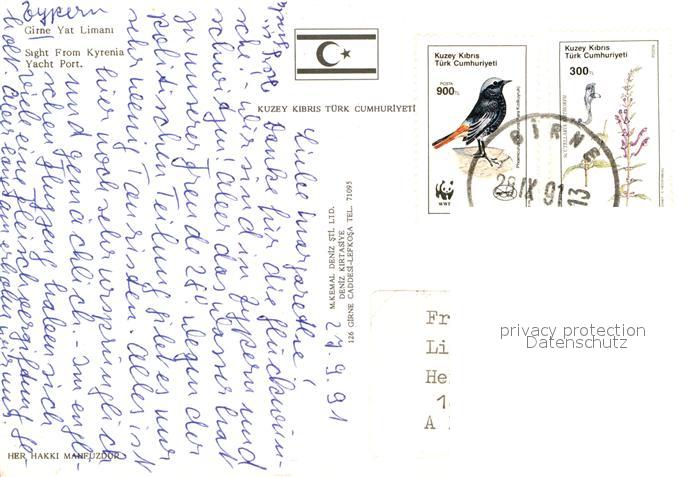 Zypern
Girne Yat Limanı
Sıght From Kyrenia
Yacht Port.
KUZEY KIBRIS TÜRK CUMHURİYETİ
Kuzey Kıbrıs
Türk Cumhuriyeti
POSTA
900TL
WWF
Kuzey Kıbrıs
Türk Cumhuriyeti
300TL
GİRNE
IX 91 13
M.KEMAL DENİZ ŞTİ. LTD.
DENİZ KIRTASİYE
126 GİRNE CADDESİ-LEFKOŞA TEL. 71095
27.9.91
Liebe Margarethe,
danke für die Glückwün-
sche! Wir sind in Zypern und
schwitzen! aber das Wasser hat
zu unserer Freude 28°. Wegen der
politischen Teilung gibt es nur
sehr wenig Touristen. Alles ist
hier noch sehr ursprünglich
und gemächlich. - Im engli-
schen Flugzeug haben sich
viele eine Fleischvergiftung ge
holt.
Fr
Li
He
1
A
privacy protection
Datenschutz
HER HAKKI MAHFUZDUR